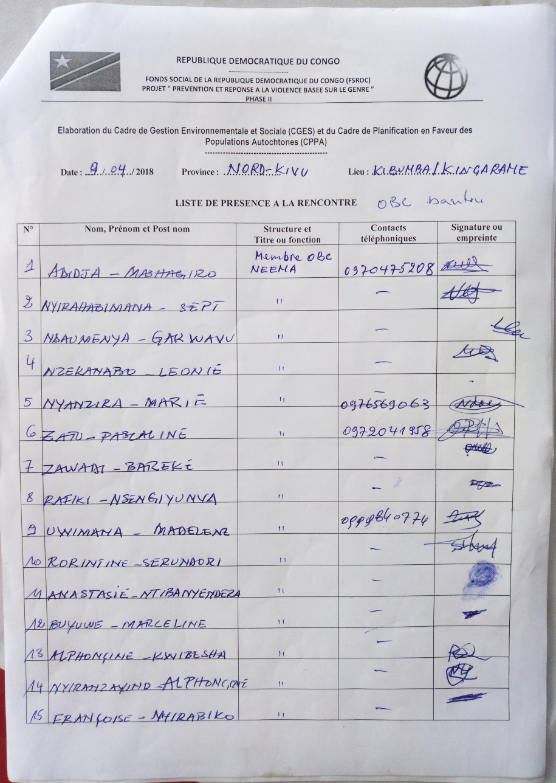 REPUBLIQUE DEMOCRATIQUE DU CONGO
FONDS SOCIAL DE LA REPUBLIQUE DEMOCRATIQUE DU CONGO (FSRDC)
PROJET " PREVENTION ET REPONSE A LA VIOLENCE BASEE SUR LE GENRE "
PHASE II
Elaboration du Cadre de Gestion Environnementale et Sociale (CGES) et du Cadre de Planification en Faveur des
Populations Autochtones (CPPA)
Date : 9/04/2018 Province : NORD-KIVU Lieu : KIBUMBA/KINGARAME
LISTE DE PRESENCE A LA RENCONTRE OBC bantu
N° Nom, Prénom et Post nom Structure et Titre ou fonction Contacts téléphoniques Signature ou empreinte
1 ABIDJA - MASHAGIRO Membre OBC NEEMA 0970475208
2 NYIRAHABIMANA - SEPT " -
3 NDAUMENYA - GARWAVU " -
4 NZEKANABO - LEONIE " -
5 NYANZIRA - MARIE " 0976569063
6 ZATU - PASCALINE " 0972041958
7 ZAWADI - BAREKE " -
8 RAFIKI - NSENGIYUNVA " -
9 UWIMANA - MADELENE " 0999840774
10 RORINTINE - SERUNDORI " -
11 ANASTASIE - NTIBANYENDERA " -
12 BUYUWE - MARCELINE " -
13 ALPHONÇINE - KWIBESHA " -
14 ALPHONÇINE " -
15 FRANÇOISE - NYIRABIKO " -